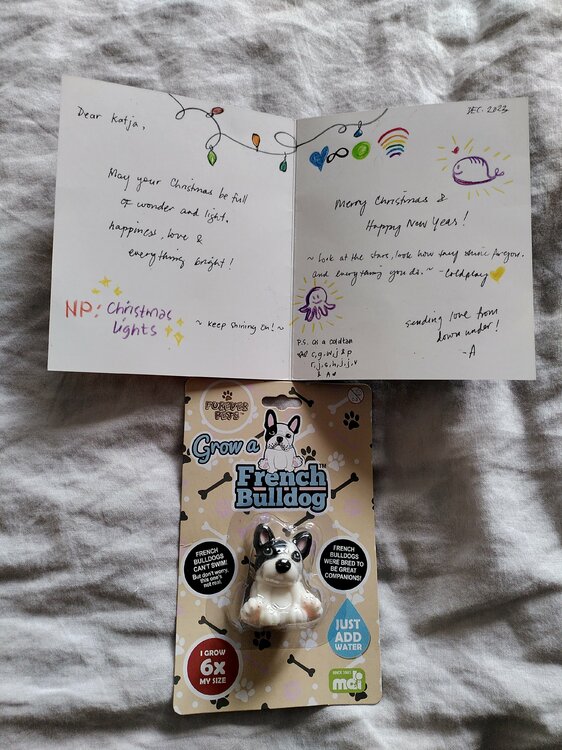 Dear Katja,
May your Christmas be full
of wonder and light,
happiness, love &
everything bright!
NP: Christmas
Lights
~ keep shining on! ~
DEC. 2023
Merry Christmas &
Happy New Year!
~ look at the stars, look how they shine for you.
and everything you do. ~ -Coldplay
sending love from
down under!
-A
P.S. as a coldfan
c, g, w, j & p
r, j, s, h, j, j, v
FUREVER
PETS
Grow a
French
Bulldog
TM
FRENCH
BULLDOGS
CAN'T SWIM!
But don't worry,
this one's
not real.
FRENCH
BULLDOGS
WERE BRED TO
BE GREAT
COMPANIONS!
I GROW
6x
MY SIZE
JUST
ADD
WATER
mdi